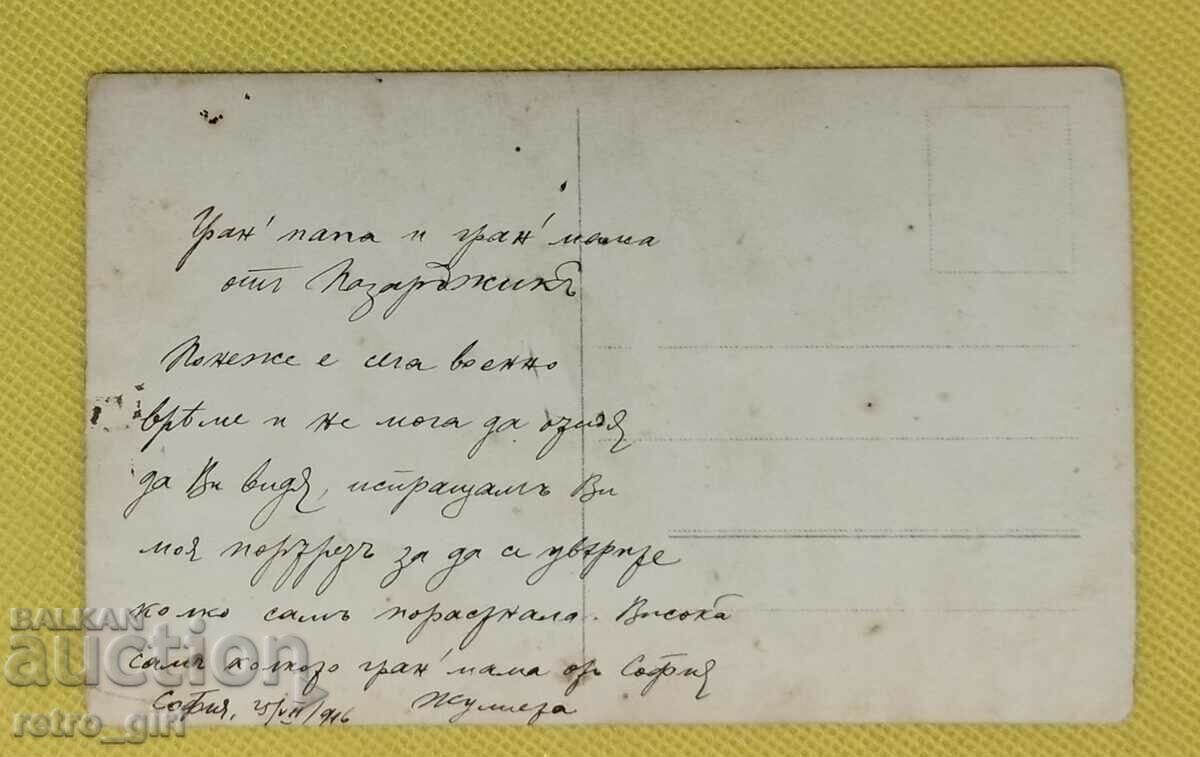 Гран' папа и гран' мама
отъ Пазарджикъ
Понеже е сега военно
врѣме и не мога да отидя
да Ви видя, испращамъ Ви
моя портретъ за да се увѣрите
колко самъ порастнала. Висока
самъ колкото гран' мама отъ София
София, 25/VII/916 Жулиета
BALKAN
auction
retro_girl